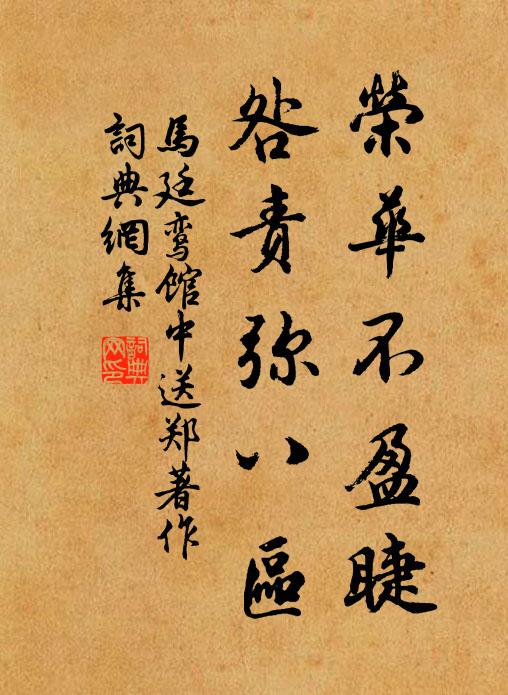 榮華不盈睫
咎責弥八區
馬廷鸾馆中送郑著作
詞典網集
詞典網印